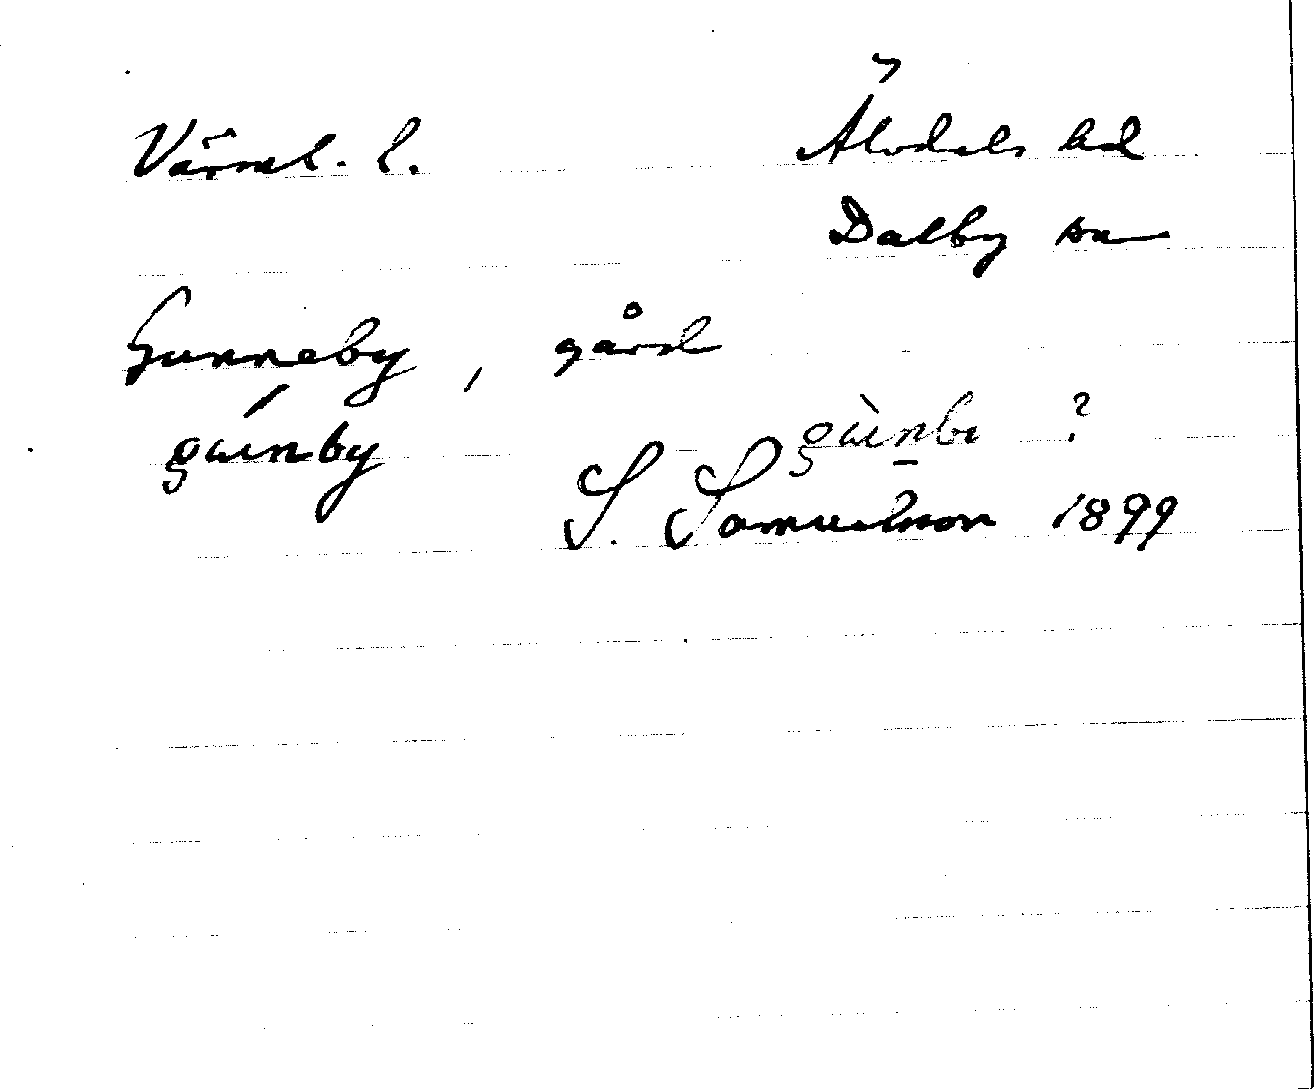 Värml. l. Älvdals hd
Dalby sn
Gunneby, gård
gɯ́nby gɯ̀n̠bı ?
S. Samuelsson 1899